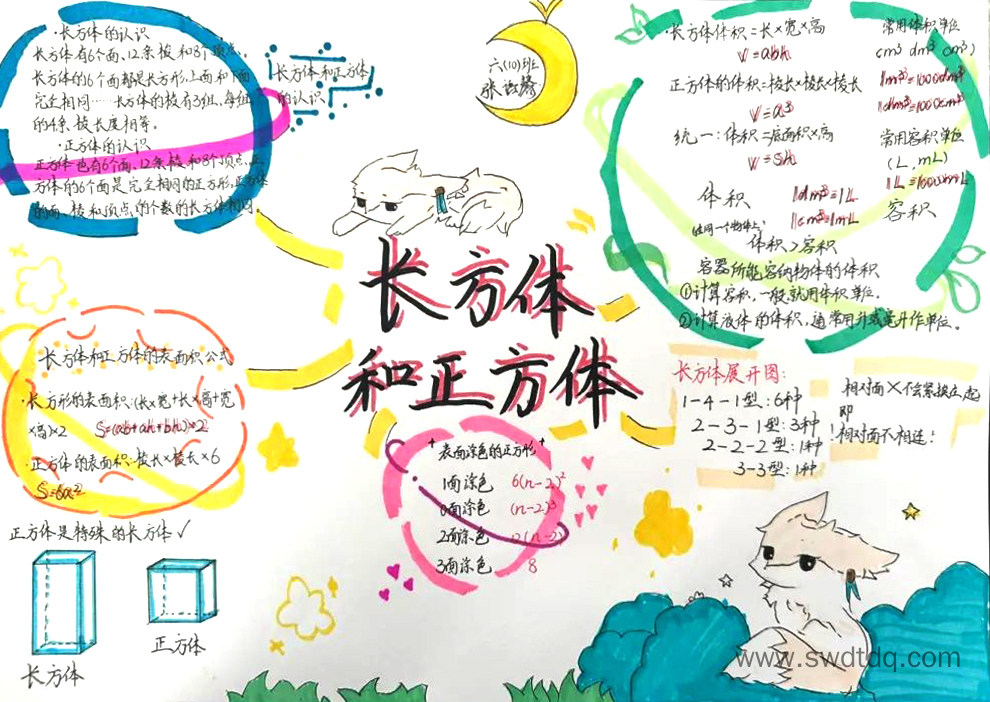 ·长方体的认识
长方体有6个面、12条棱和8个顶点。
长方体的6个面都是长方形,上面和下面
完全相同……长方体的棱有3组,每组
的4条棱长度相等。
·正方体的认识
正方体也有6个面、12条棱和8个顶点,正
方体的6个面是完全相同的正方形,正方体
的面、棱和顶点的个数与长方体相同。
长方体和正方体
的认识
六(10)班
长方体
和正方体
·长方体体积=长×宽×高
V=abh
正方体的体积=棱长×棱长×棱长
V=a³
统一:体积=底面积×高
V=Sh
常用体积单位
cm³ dm³ cm³)
1m³=1000dm³
1dm³=1000cm³
常用容积单位
(L,mL)
1L=1000mL
体积
1dm³=1L
1cm³=1mL
容积
体积>容积
容器所能容纳物体的体积
①计算容积,一般就用体积单位。
②计算液体的体积,通常用升或毫升作单位。
长方体和正方体的表面积公式
·长方形的表面积:(长×宽+长×高+宽
×高)×2 S=(ab+ah+bh)×2
·正方体的表面积:棱长×棱长×6
S=6a²
正方体是特殊的长方体√
长方体
正方体
表面涂色的正方形
1面涂色 6(n-2)²
0面涂色 (n-2)³
2面涂色 12(n-2)
3面涂色 8
长方体展开图:
1-4-1型:6种
2-3-1型:3种
2-2-2型:1种
3-3型:1种
相对面×不会紧挨在一起
即
相对面不相连!
www.swdtdq.com